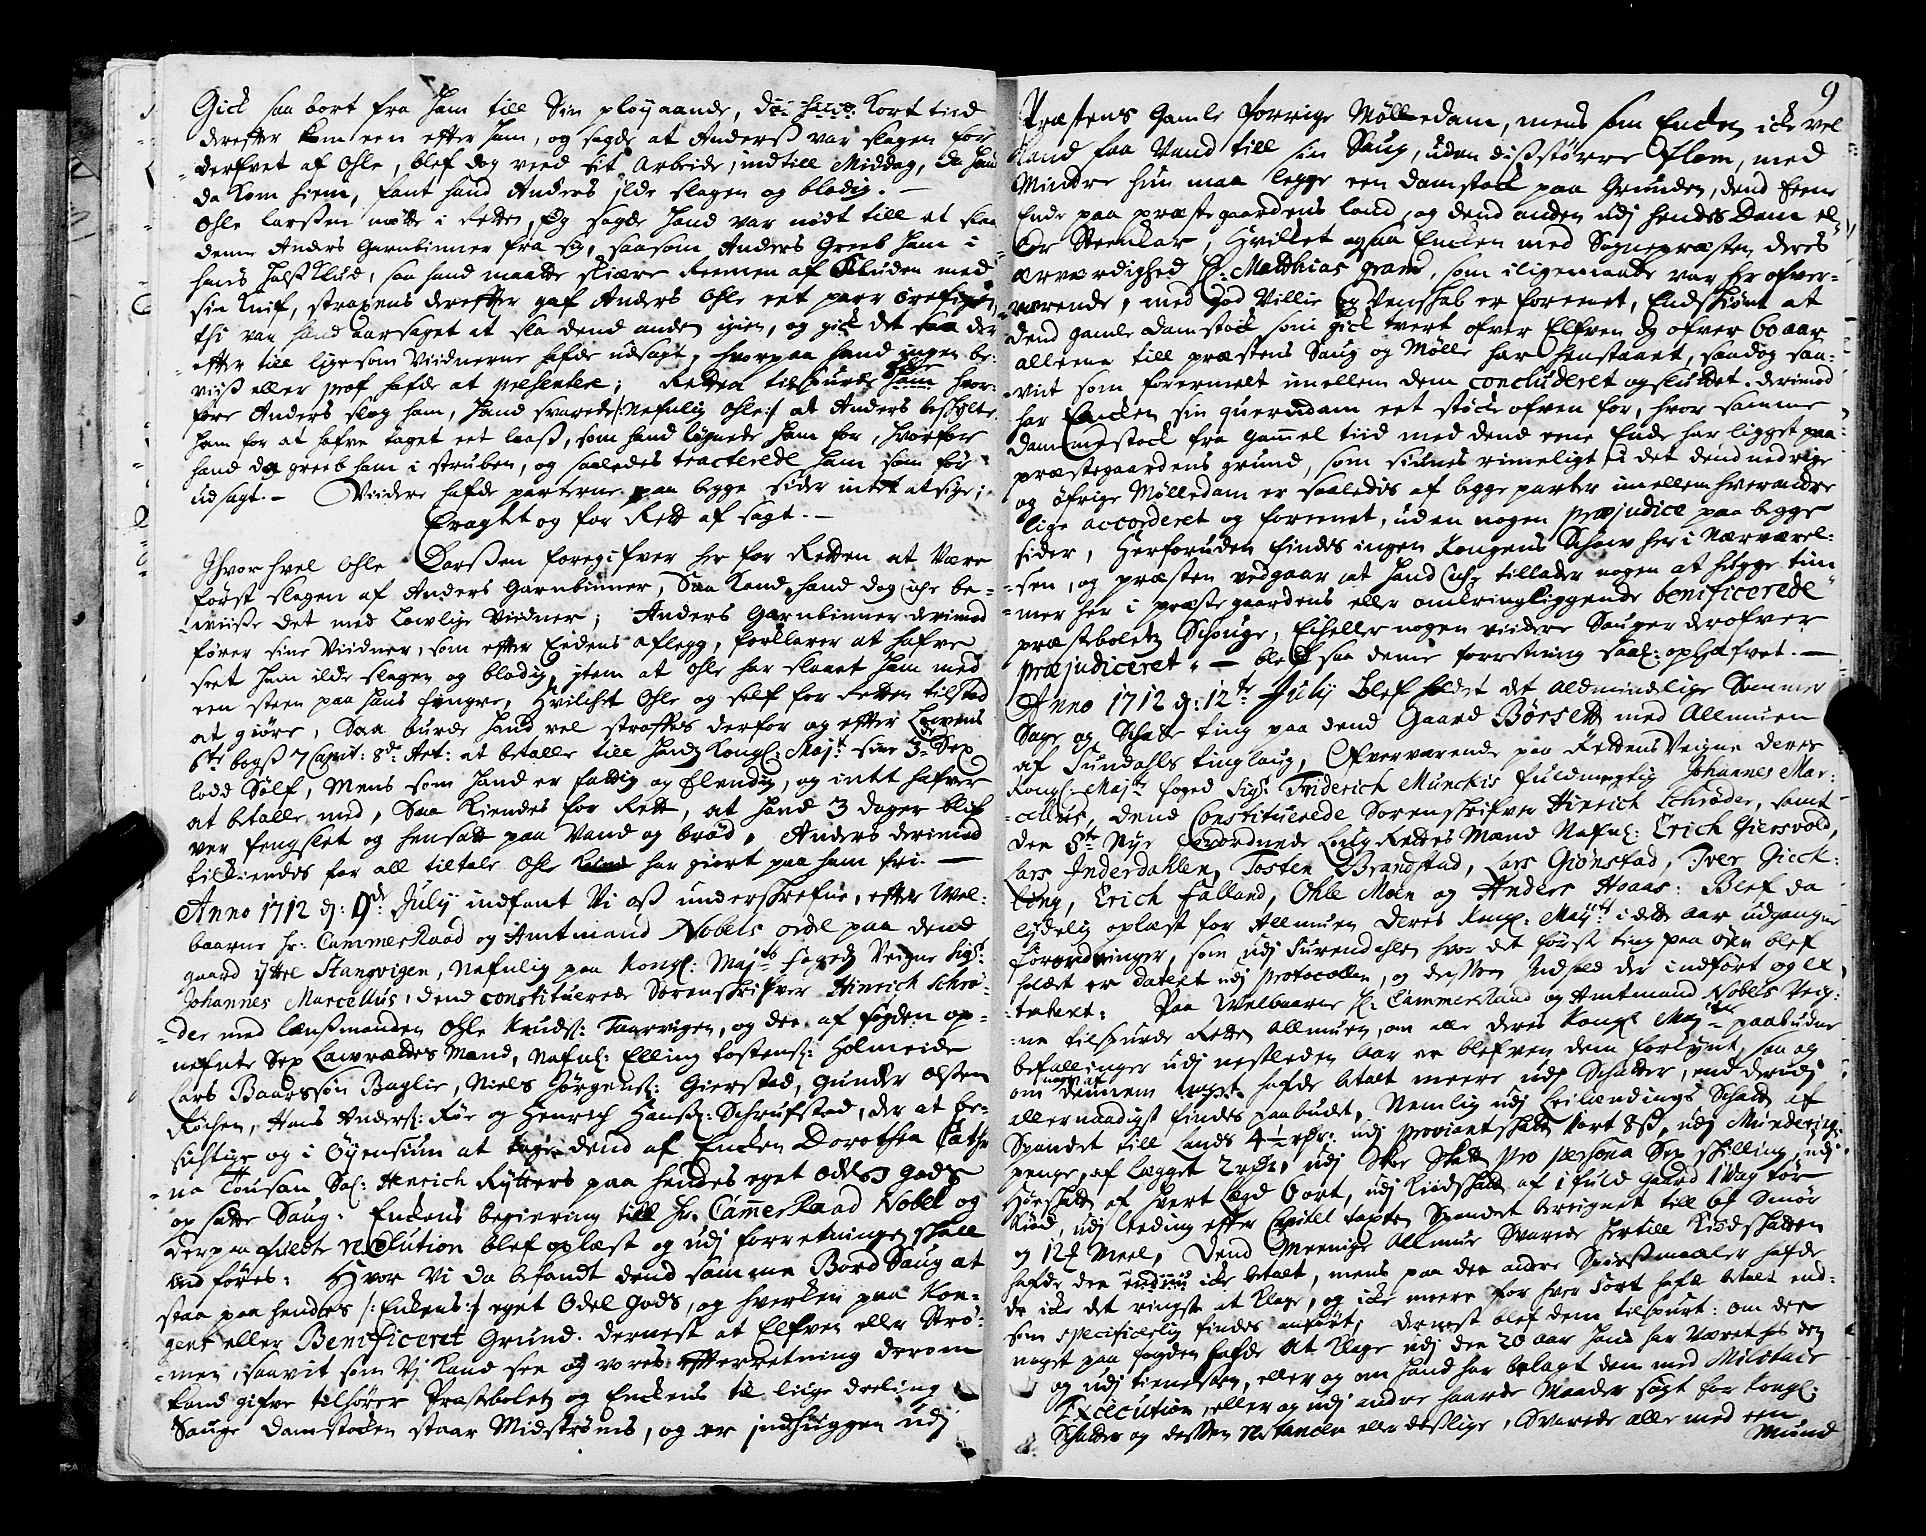 Gick saa bort fra ham till Sin ployaande, da kort tied
derefter kom een efter ham, og sagde at Anderss var slagen for
derfvet af Ohle, blef dog veed sit arbeide, indtill Middag, da hand
da kom hiem, fant hand Anders ilde slagen og blodig. –
Ohle Larssen møtte i Retten, og sagde hand var nødt till at slaa
denne Anders Garnbinner fra sig, saasom Anders Greeb ham i
hans halsskud, saa hand maatte skiære Remmen af Kluden med
sin knif, straxens derefter gaf Anders Ohle eet parr ørefigen,
thi var hand aarsaget at sla dend anden igien, og gick det saa der
efter till lige som Viidnerne hafde udsagt, hvorpaa hand ingen be-
viiss eller prof hafde at presentere; Retten tilspurde ham hvor-
fore Anders slog ham, hand svarede /: Nefnlig Ohle :/ at Anders beskylte
ham for at hafve taget eet laass, som hand løgnede ham for, hvorfore
hand da greeb ham i struben, og saaledes tracterede ham som før
udsagt. – Viidere hafde parterne paa begge sider intet at sige;
Eragtet og for Rett af sagt. –
Ihvor hvel Ohle Larssen foregifver her for Retten at være
først slagen af Anders Garnbinner, Saa kand hand dog icke be-
wiise det med Lowlige Viidner; Anders Garnbinner derimod
fører sine Viidner, som efter Eedens aflegg, forklarer at hafve
seet ham ilde slagen og blodig, jtem at Ohle har slaaet ham med
een steen paa hans fingre, hvilchet Ohle og self for Retten tilstod
at giøre, Saa burde hand vel straffes derfor og efter Lowens
6te bogs 7 Capit: 8de Art: at betalle till hands Kongl: Majt: sine 3de Sex
lodd Sølf, Mens som hand er fattig og Elendig, og intet hafver
at betalle med, Saa kiendes for Rett, at hand 3 dager blif
ver fengslet og hensatt paa Vand og brød, Anders derimod
tilkiendes for all tiltale Ohle har giort paa ham fri. –
Anno 1712 d: 9de July indfant Vi oss underskrefne, efter Wel-
baarne hr: Cammer Raad og Amtmand Nobels ordre paa dend
gaard ytre Stangvigen, Nefnlig paa Kongl: Majts foged Veigne Sigr:
Johannes Marcellus, dend constituerede Sorenskrifver Hinrich Schrø-
der med Lænssmanden Ohle Knuds: Taarvigen, og dee af fogden op-
nefnte Sex Lawrættes Mænd, Nafnl: Elling Tostens: Holmeide
Lars Baardssøn Baglie, Niels Jørgens: Gierstad, Gunder Olsen
Røchen, Hans Anders: Røe og Henrich Hans: Schrufstad, der at be-
sichtige og i Øyensium at tage dend af Encken Dorothea Cathr
na Tønsan Sal: Henrich Rytters paa hendes eget odels gods
opsatte Saug. Enckens begiering till Hr. Cammer Raad Nobel og
derpaa fuldte resolution blef oplæst og udj forretningen skall
ind føres: Hvor Vi da befandt dend samme Bord Saug at
staa paa hendes /: Enckens :/ eget Odel gods, og hverken paa Kon-
gens eller Benificeret Grund. dernest at Elfven eller Strø-
men, saavit som Vj kand see og vores efterretning derom
kand gifve tilhører Præsteboletz og Enckens til liige deeling
Sauge Damstocken staar Midstrøms, og er indhuggen udj
9
Præstens Gamle forrige Mølledam, mens som Encken icke vel
kand faa Vand till sin Saug, uden disstørre flom, med
Mindre hun maa legge een damstock paa Grunden, dend Eene
Ende paa præstegaardens land, og dend anden udj hendes Dam el-
ler Steenkar, hvilket ogsaa Encken med Sognepræsten deris
ærværdighed H: Matthias Gram, som iligemaade var her ofver-
værende, med god Villie og Venskab er foreenet, Endskiønt at
dend gamle damstock som gick tvert ofver Elfven og ofver 60 aar
alleene till præstens Saug og Mølle har henstaaet, saadog saa-
vit som formelt imellem dem concluderet og sluttet. derimod
har Encken sin querndam eet støcke ofven for, hvor samme
damstock fra gammel tiid med dend eene Ende har ligget paa
præstegaardens grund, som siunes rimeligt i det dend nedrige
og øfrige Mølledam er saaledis af begge parter imellem hverandre
lige accorderet og foreenet, uden nogen præjudice paa begge
sider, herforuden findes ingen Kongens Schow her i Nærværel-
sen, og præsten vedgaar at hand icke tillader nogen at hugge tim-
mer her i præstegaardens eller omkringliggende benificerede
præsteboletz Schouge, Eiheller nogen viidere Sauger derofver
præjudiceret – blef saa denne forretning saal: ophæfvet. –
Anno 1712 d: 12te July blef holdet det aldmindelige Sommer
Sage og Schatte ting paa dend Gaard Børsett med Allmuen
af Sundahls tinglaug, Ofverværende paa Rettens Veigne deres
Kongl: Majts foged Sigr: Friderich Munckis fuldmegtig Johannes Mar-
cellus, dend Constituerede Sorenskrifver Hinrich Schrøder, samt
den 8te Nye Laug Rettes Mænd Nafnl: Erich Giersvold,
Lars Inderdahlen, Tosten Brandstad, Lars Grønstad, Iver Jieck-
ling, Erich Falland, Ohle Moen og Anders Hoaas: Blef da
lydelig oplæst for Allmuen Deres Kongl: Maytts i dette aar udgangne
forordninger, som udj Surendahlen hvor det første ting paa øen blef
holdet er dateret udj protocollen, og dessen Indhold der indført og ex
traheret: Paa Welbaarne H: Cammer Raad og Amtmand Nobels Veig-
ne tilspurde Retten Allmuen, om alle deres Kongl Maytts paabudne
befallinger udj nestleden Aar er blefven dem forkynt, saa og
om nogen af dennem noget hafde betalt meere udj Schatter, end derudj
allernaadigst findes paabudet, Nemlig udj Leilendings Schatt af
Spandet till Lands 4½ rdr: udj proviantskatt kort 8s, udj Mundering
penge, af lægget 2 rdr, udj Skoe Skatt pro persona Sex skilling, udj
Høeskatt af hvert lægd 6 ort, udj Kiødskatt af 1 fuld Gaard 1 Wog tør
Kiød, udj leeding efter Capitel taxten Spandet bereignet till 6 Smør
og 12 Meel, Dend Meenige Allmue Svarede hertill Kiødskatten
hafde den endnu icke betalt, mens paa dee andre Spørssmaaler hafde
de icke det ringste at klage, og icke meere for hver sort hafde betalt end-
som specificerlig findes anført, Dernest blef dem tilspurt: om dee
noget paa fogden hafde at klage udj den 20 aar hand har Været hos dem
og udj tienesten, eller og om hand har belagt dem med Militair
Execution, eller og udj andre haarde Maader søgt for Kongl:
Schatter og dessen restantzer eller desslige, Svarede alle med een
Mund